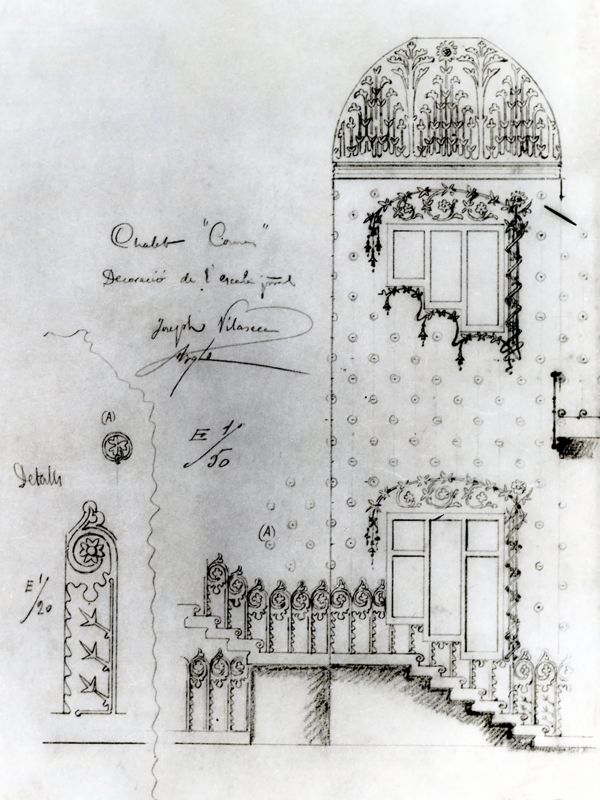 Chalet "Comas"
Decoració de l'escala pral
Joseph Vilaseca
Arqte
E 1/50
(A)
Detalls
E 1/20
(A)